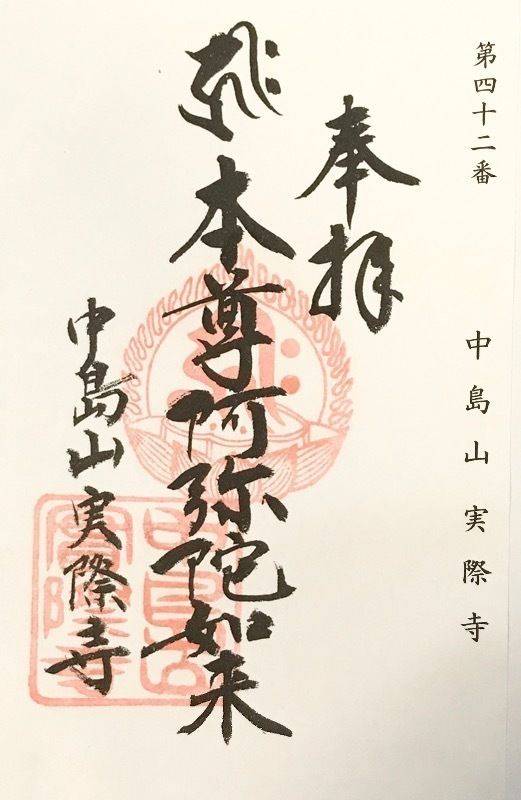 第四十二番
中島山実際寺
奉拝
本尊阿弥陀如来
中島山実際寺